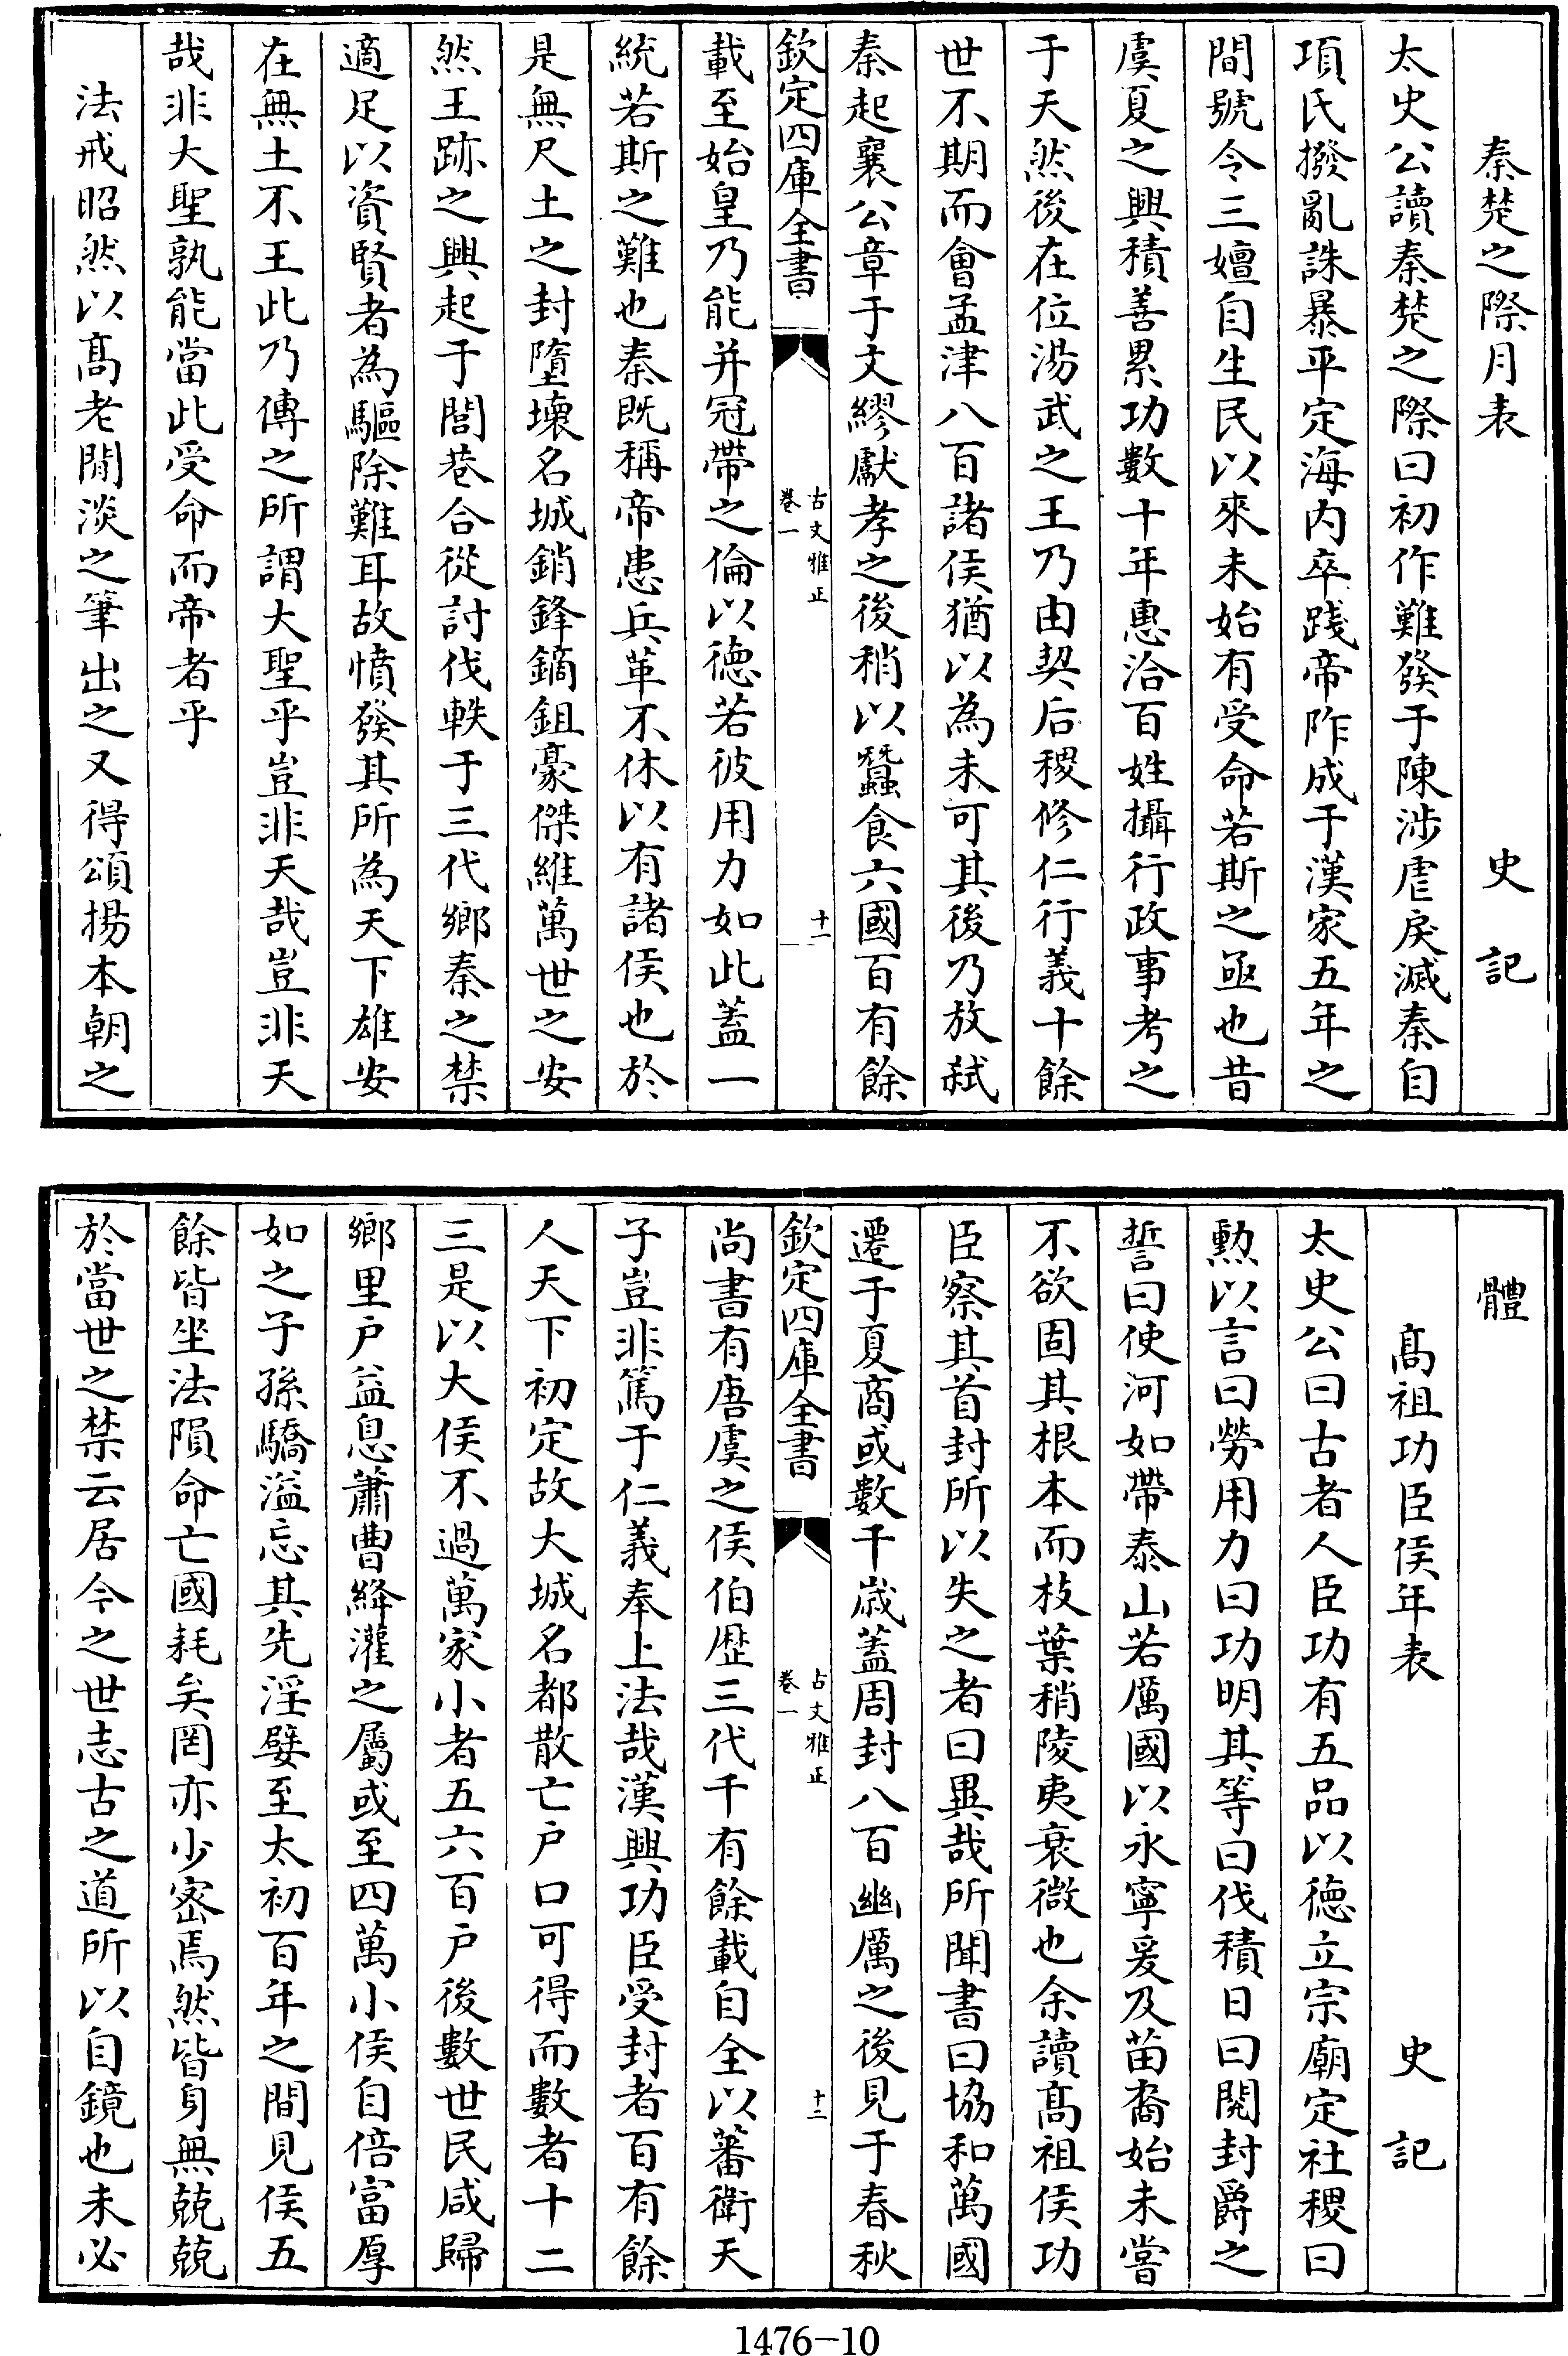 秦楚之際月表　史記
太史公讀秦楚之際曰初作難發于陳涉虐戾滅秦自
項氏撥亂誅暴平定海内卒踐帝阼成于漢家五年之
間號令三嬗自生民以來未始有受命若斯之亟也昔
虞夏之興積善累功數十年惠洽百姓攝行政事考之
于天然後在位湯武之王乃由契后稷修仁行義十餘
世不期而會孟津八百諸侯猶以為未可其後乃放弑
秦起襄公章于文繆獻孝之後稍以蠶食六國百有餘
欽定四庫全書
古文雅正
卷一
十一
載至始皇乃能并冠帶之倫以徳若彼用力如此蓋一
統若斯之難也秦既稱帝患兵革不休以有諸侯也於
是無尺土之封墮壞名城銷鋒鏑鉏豪傑維萬世之安
然王跡之興起于閭巷合從討伐軼于三代鄉秦之禁
適足以資賢者為驅除難耳故憤發其所為天下雄安
在無土不王此乃傳之所謂大聖乎豈非天哉豈非天
哉非大聖孰能當此受命而帝者乎
法戒昭然以髙老閒淡之筆出之又得頌揚本朝之
體
髙祖功臣侯年表　史記
太史公曰古者人臣功有五品以徳立宗廟定社稷曰
勲以言曰勞用力曰功明其等曰伐積日曰閲封爵之
誓曰使河如帶泰山若厲國以永寧爰及苗裔始未嘗
不欲固其根本而枝葉稍陵夷衰微也余讀髙祖侯功
臣察其首封所以失之者曰異哉所聞書曰協和萬國
遷于夏商或數千歳蓋周封八百幽厲之後見于春秋
欽定四庫全書
古文雅正
卷一
十二
尚書有唐虞之侯伯歴三代千有餘載自全以蕃衛天
子豈非篤于仁義奉上法哉漢興功臣受封者百有餘
人天下初定故大城名都散亡户口可得而數者十二
三是以大侯不過萬家小者五六百户後數世民咸歸
鄉里户益息蕭曹絳灌之屬或至四萬小侯自倍富厚
如之子孫驕溢忘其先淫嬖至太初百年之間見侯五
餘皆坐法隕命亡國耗矣罔亦少密焉然皆身無兢兢
於當世之禁云居今之世志古之道所以自鏡也未必
1476-10